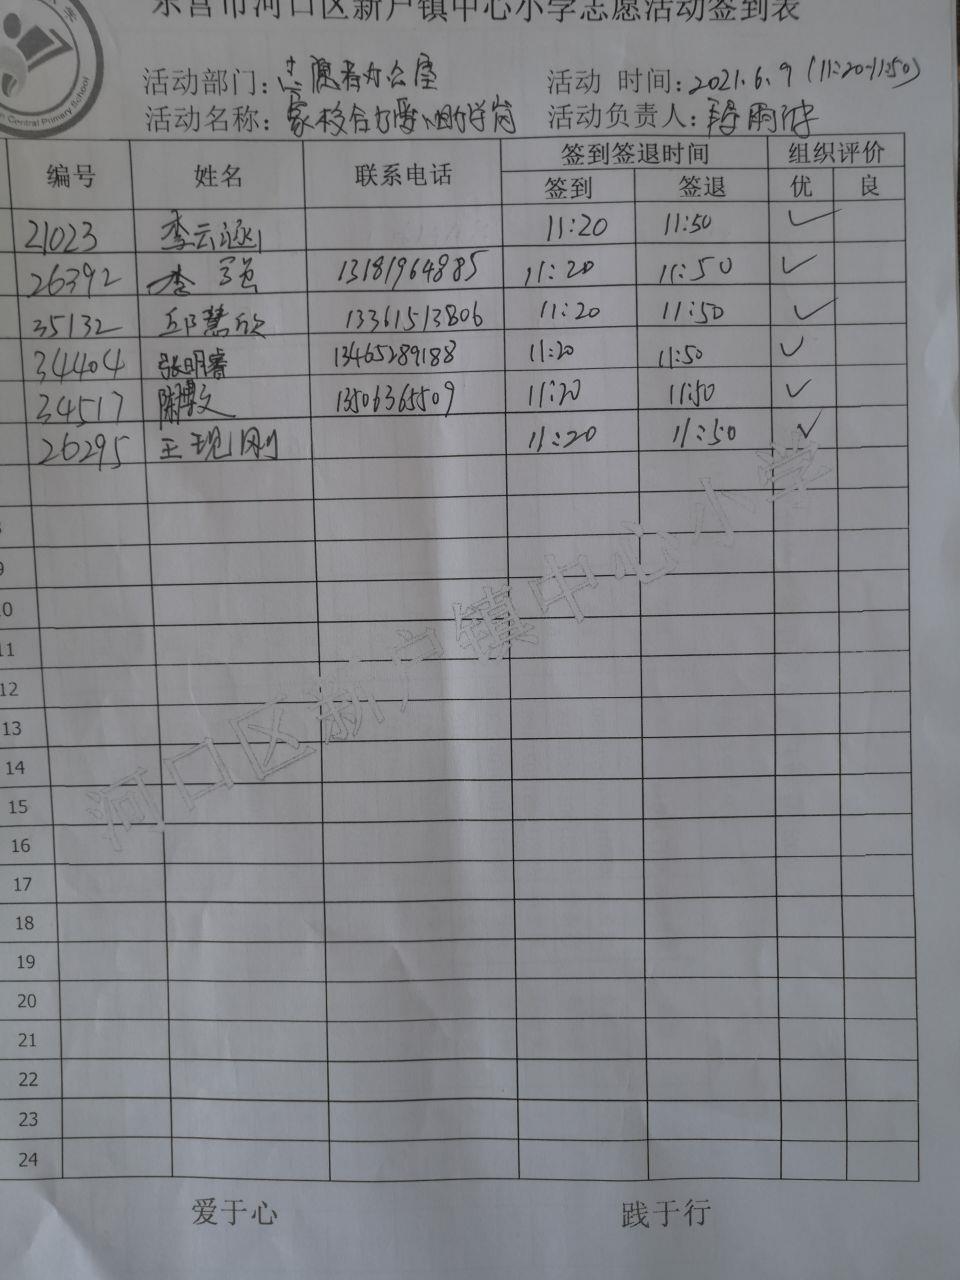 东营市河口区新户镇中心小学志愿活动签到表
Central Primary School
活动部门：志愿者办公室 活动 时间：2021.6.9（11:20-11:50）
活动名称：家校合力爱心助学岗 活动负责人：
编号 姓名 联系电话 签到签退时间 组织评价
签到 签退 优 良
21023 李云涵 11:20 11:50 ✓
26392 李强 13181964885 11:20 11:50 ✓
35132 邱慧欣 13361513806 11:20 11:50 ✓
34404 张明睿 13465289188 11:20 11:50 ✓
34517 陈博文 13506365509 11:20 11:50 ✓
26295 王现刚 11:20 11:50 ✓
9
10
11
12
13
14
15
16
17
18
19
20
21
22
23
24
河口区新户镇中心小学
爱于心 践于行